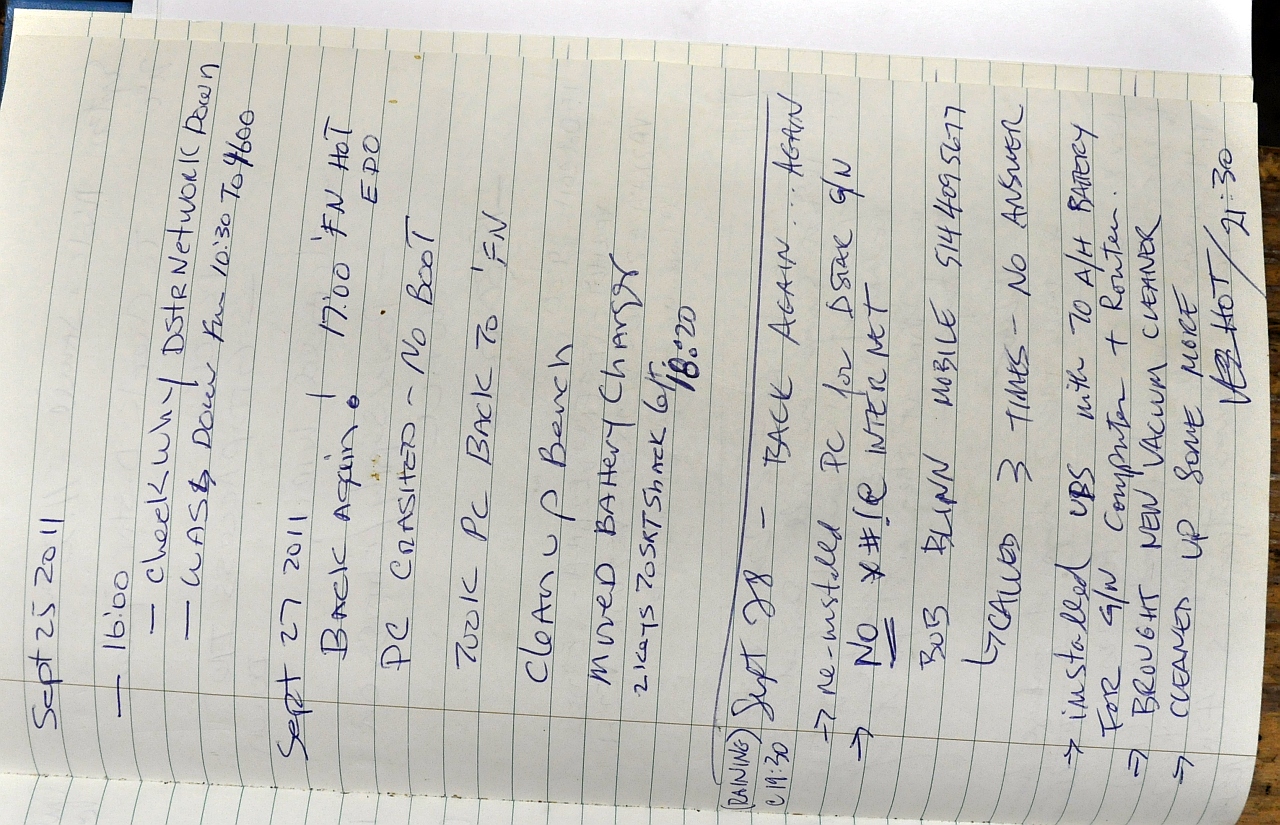 Sept 25 2011
— 16:00
— Check Why DSTR Network Down
— WAS Down From 10:30 To
Sept 27 2011
Back Again! 17:00 'FN HOT
EDO
PC CRASHED - NO BOOT
TOOK PC BACK TO 'FN
Clean up Bench
Moved BATTery Charger
2 Keys TO SKTSHACK
18:20
(RAINING) Sept 28 - BACK AGAIN .... AGAIN
@ 19:30
→ re-installed PC for DSTAR G/W
→ NO *#!@ INTERNET
BOB BLINN MOBILE 514 409 5677
↳ CALLED 3 TIMES - NO ANSWER
→ installed UBS with 70 A/H BATTERY
FOR G/W Computer + Router.
→ BROUGHT NEW VACUM CLEANER
→ CLEANED UP SOME MORE
HOT / 21:30